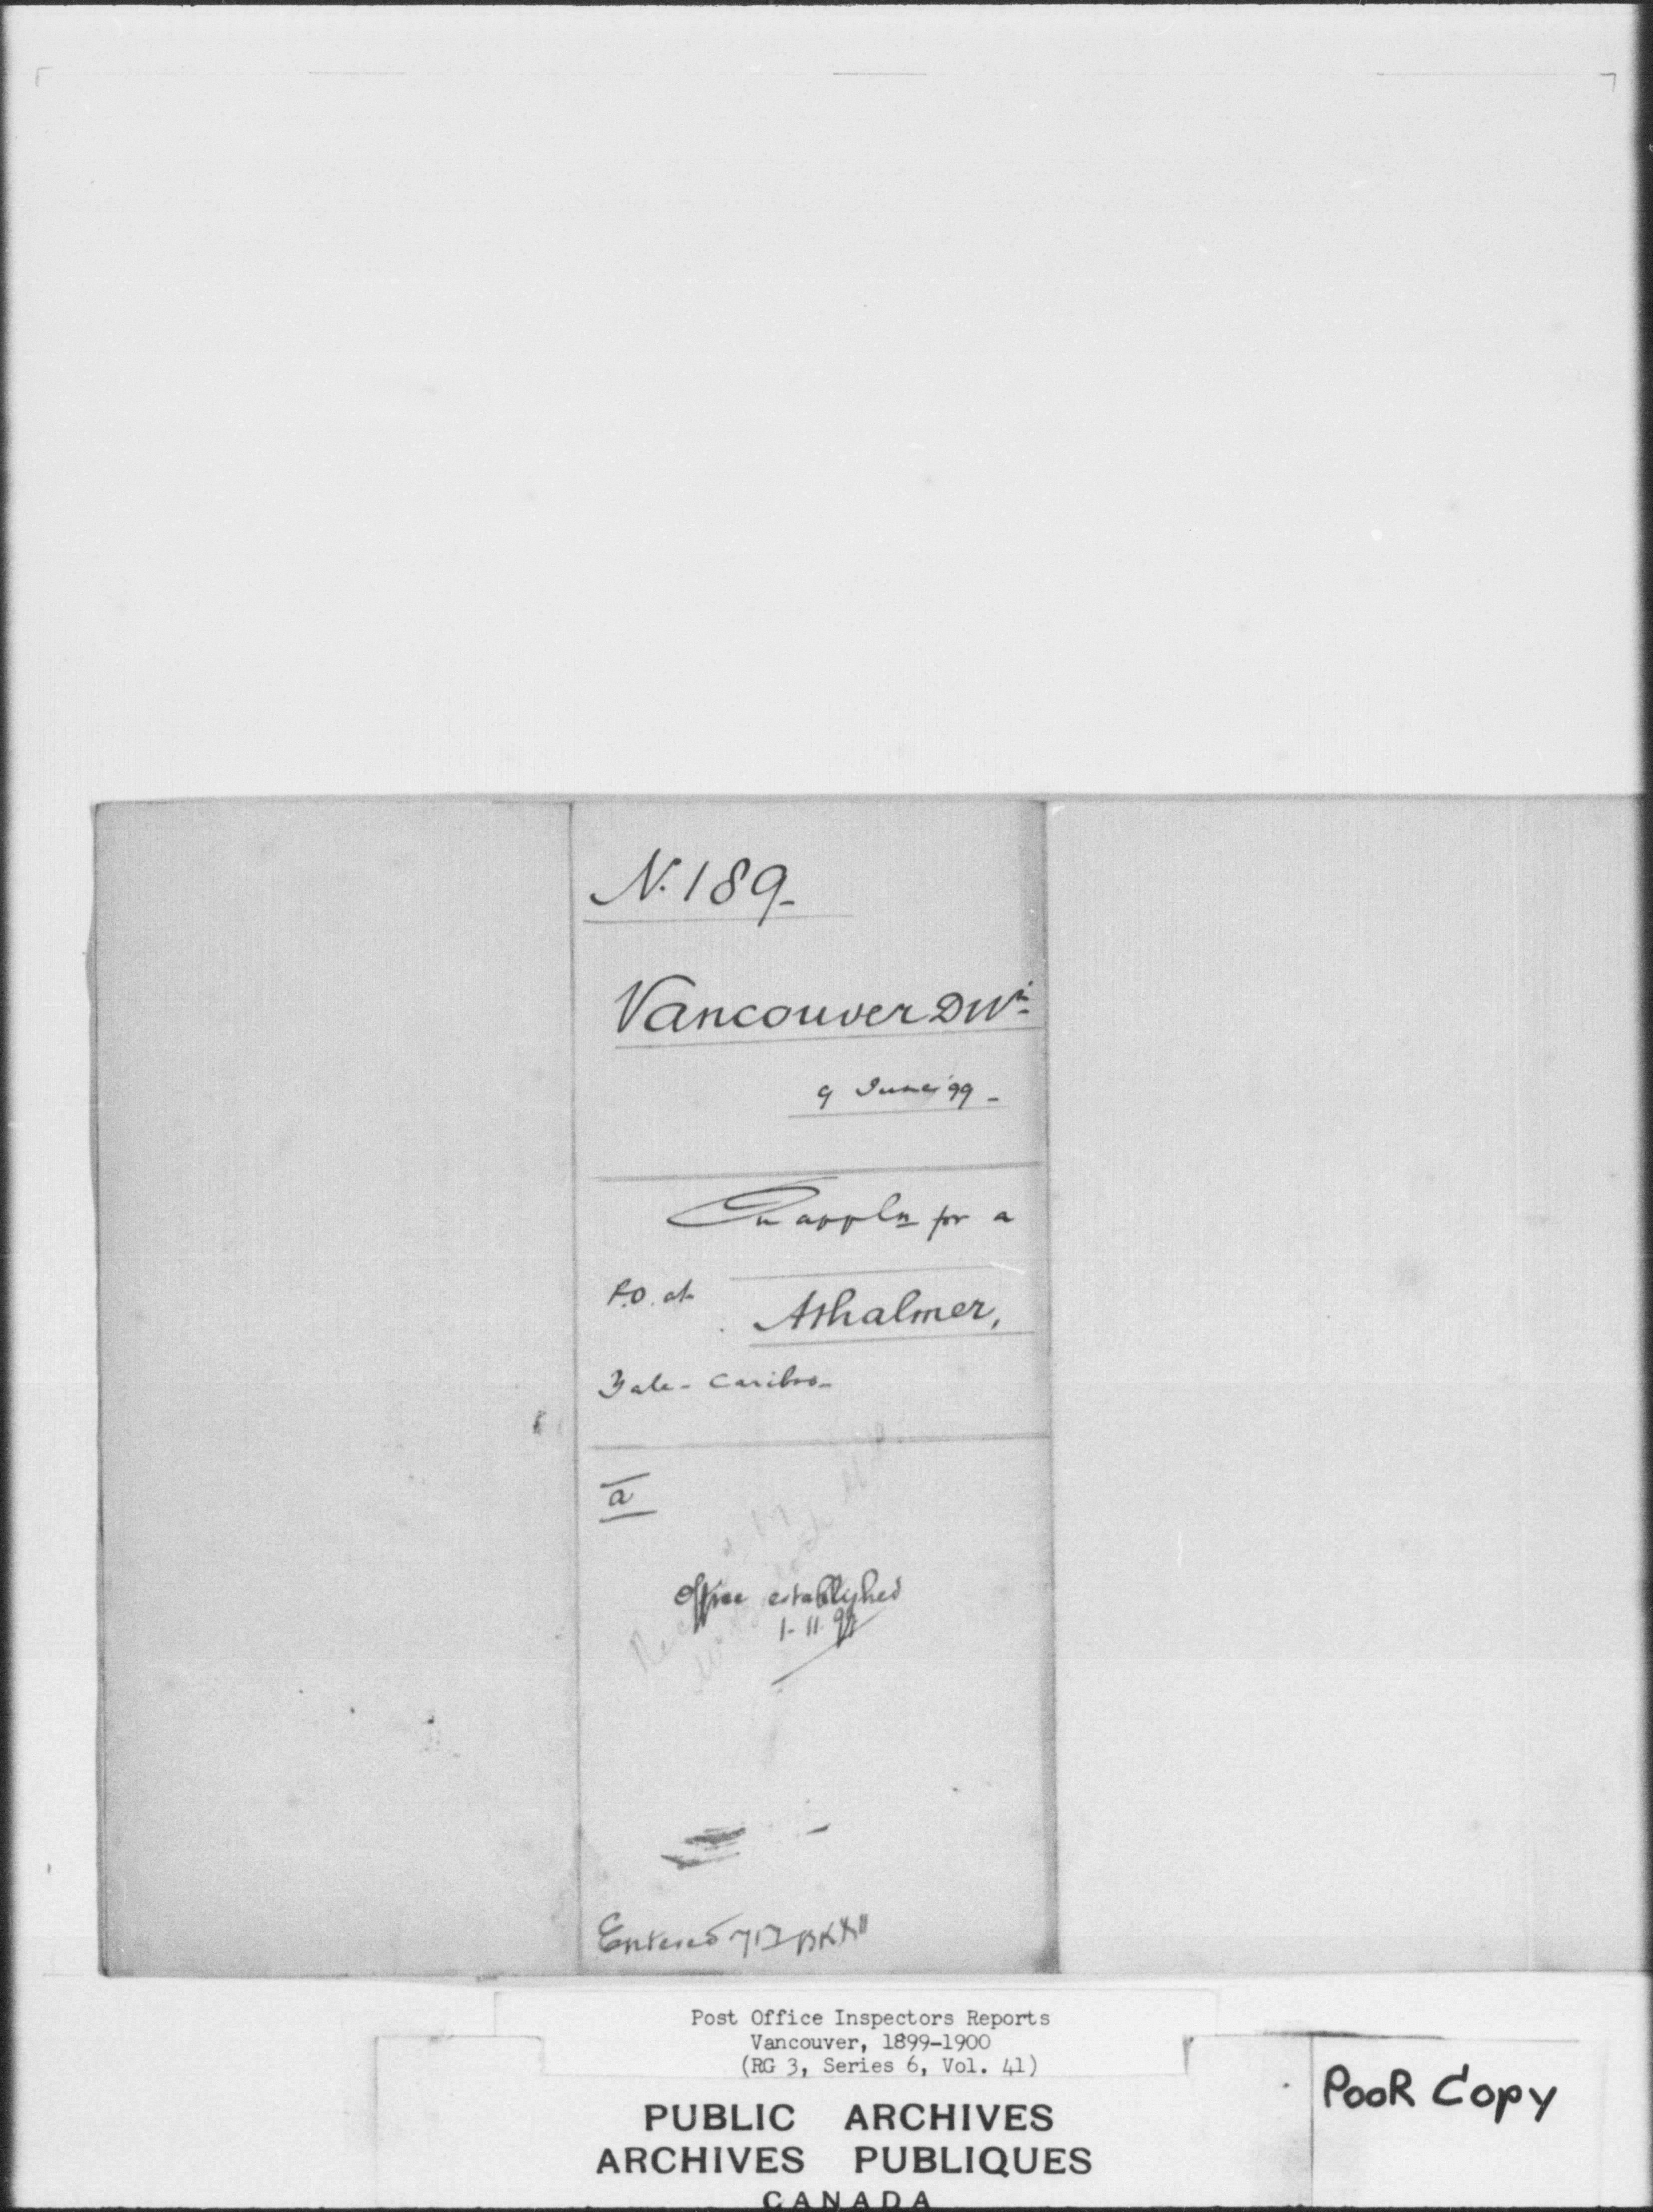 N. 189-
Vancouver Divn
9 June 99 -
On appln for a
P.O. at
Athalmer,
Yale - Cariboo -
a
Office established
1-11-99
Entered
Post Office Inspectors Reports
Vancouver, 1899-1900
(RG 3, Series 6, Vol. 41)
POOR COPY
PUBLIC ARCHIVES
ARCHIVES PUBLIQUES
CANADA